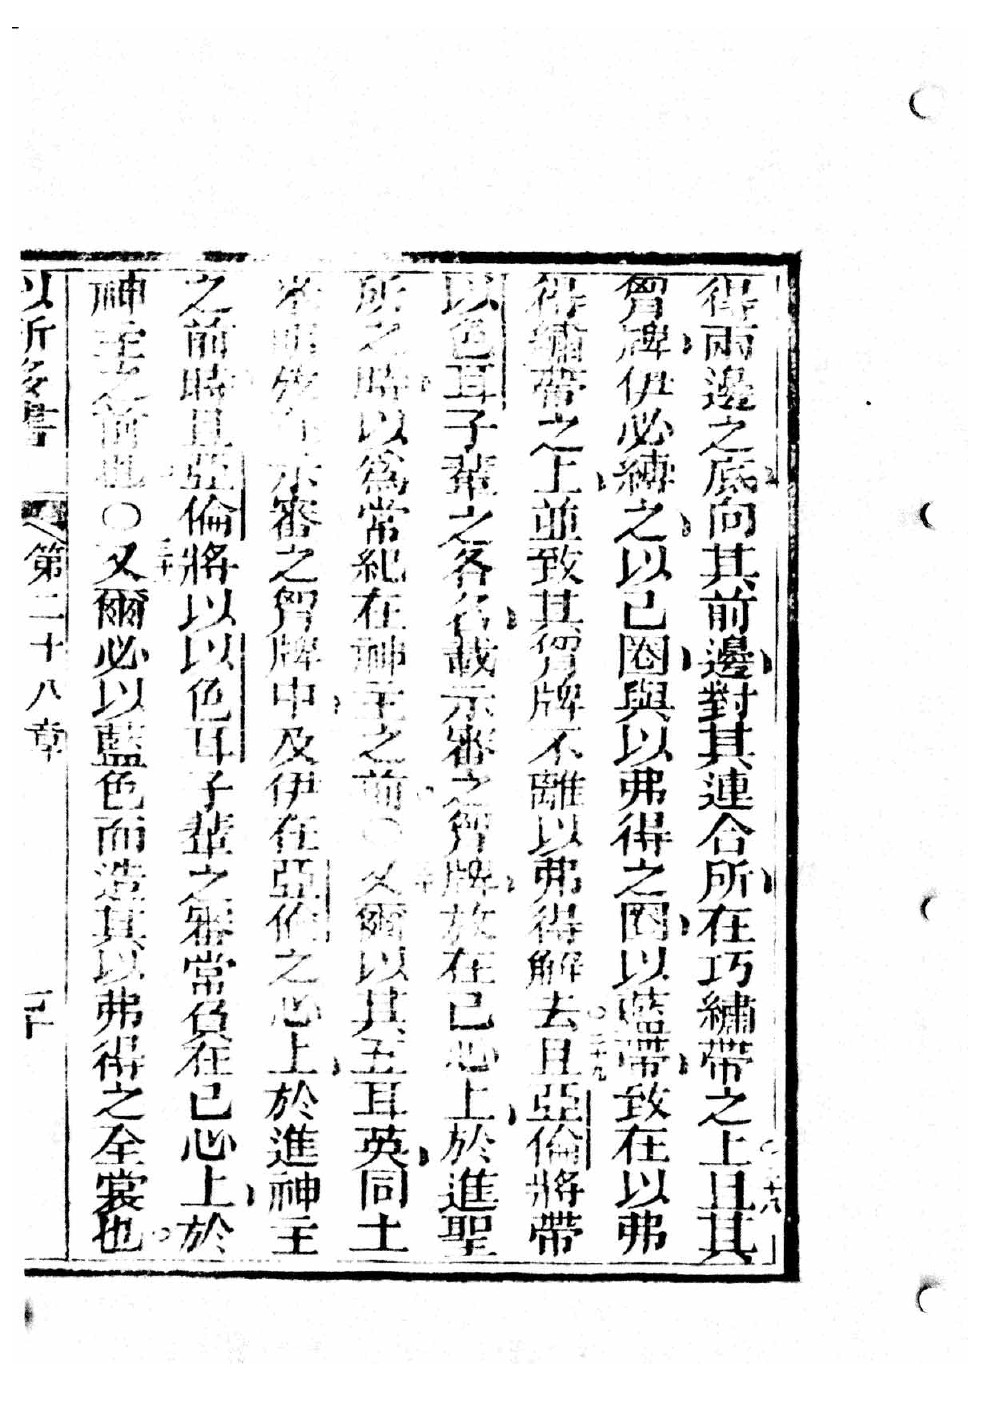 得兩邊之底向其前邊對其連合所在巧繡帶之上且其
二十八
胷牌伊必縛之以己圈與以弗得之圈以藍帶致在以弗
得繡帶之上並致其胷牌不離以弗得解去且亞倫將帶
二十九
以色耳子輩之各名載示審之胷牌放在己心上於進聖
所之時以爲常紀在神主之前〇又爾以其五耳英同土
三十
門必放在示審之胷牌中及伊在亞倫之心上於進神主
之前時且亞倫將以以色耳子輩之審常負在己心上於
神主之前也〇又爾必以藍色而造其以弗得之全裳也
三十一
以所多書 第二十八章 二十